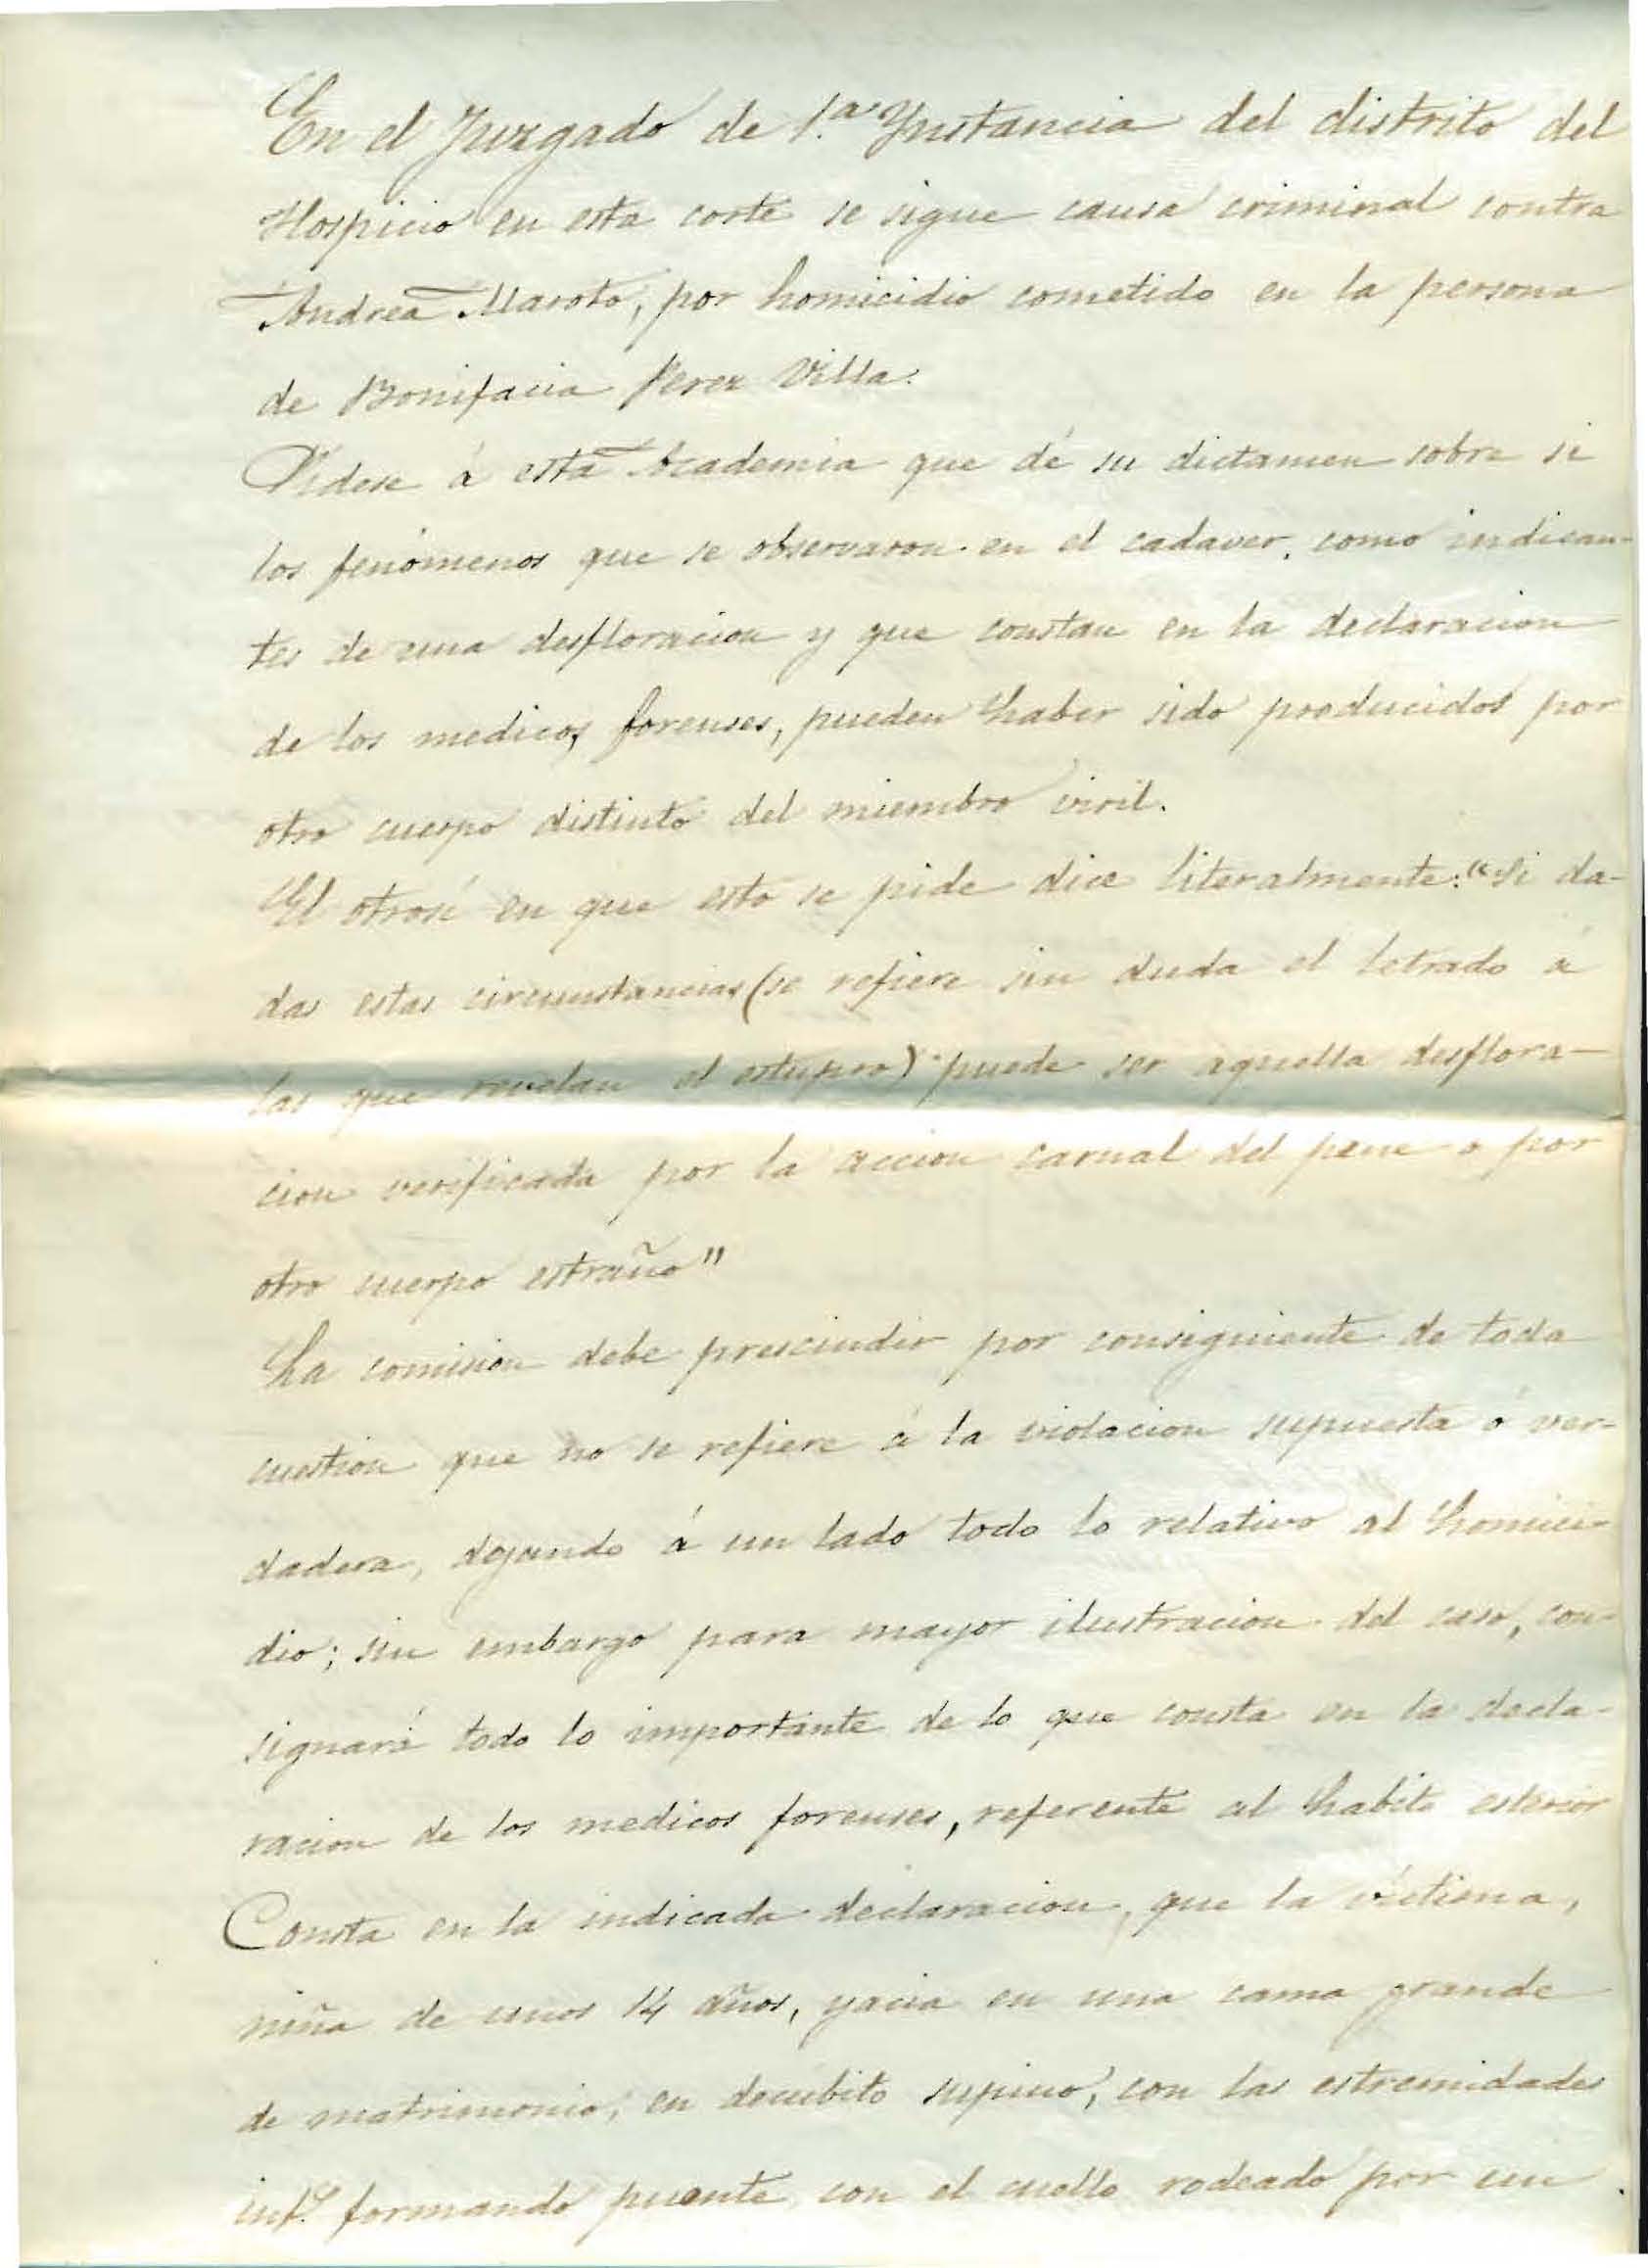 En el Juzgado de 1.ª Ynstancia del distrito del
Hospicio en esta corte se sigue causa criminal contra
Andrea Maroto, por homicidio cometido en la persona
de Bonifacia Perez Villa.
Pidese á esta Academia que dé su dictamen sobre si
los fenómenos que se observaron en el cadaver, como indican-
tes de una desfloracion y que constan en la declaracion
de los medicos forenses, pueden haber sido producidos por
otro cuerpo distinto del miembro viril.
El otrosí en que esto se pide dice literalmente: "Si da-
das estas circunstancias (se refiere sin duda el letrado á
las que revelan el estupro) puede ser aquella desflora-
cion verificada por la accion carnal del pene o por
otro cuerpo estraño"
La comision debe prescindir por consiguiente de toda
cuestion que no se refiere á la violacion supuesta ó ver-
dadera, dejando á un lado todo lo relativo al homici-
dio; sin embargo para mayor ilustracion del caso, con-
signará todo lo importante de lo que consta en la decla-
racion de los medicos forenses, referente al habito esterior
Consta en la indicada declaracion, que la víctima,
niña de unos 14 años, yacia en una cama grande
de matrimonio, en decubito supino, con las estremidades
inf.s formando puente con el cuello rodeado por un